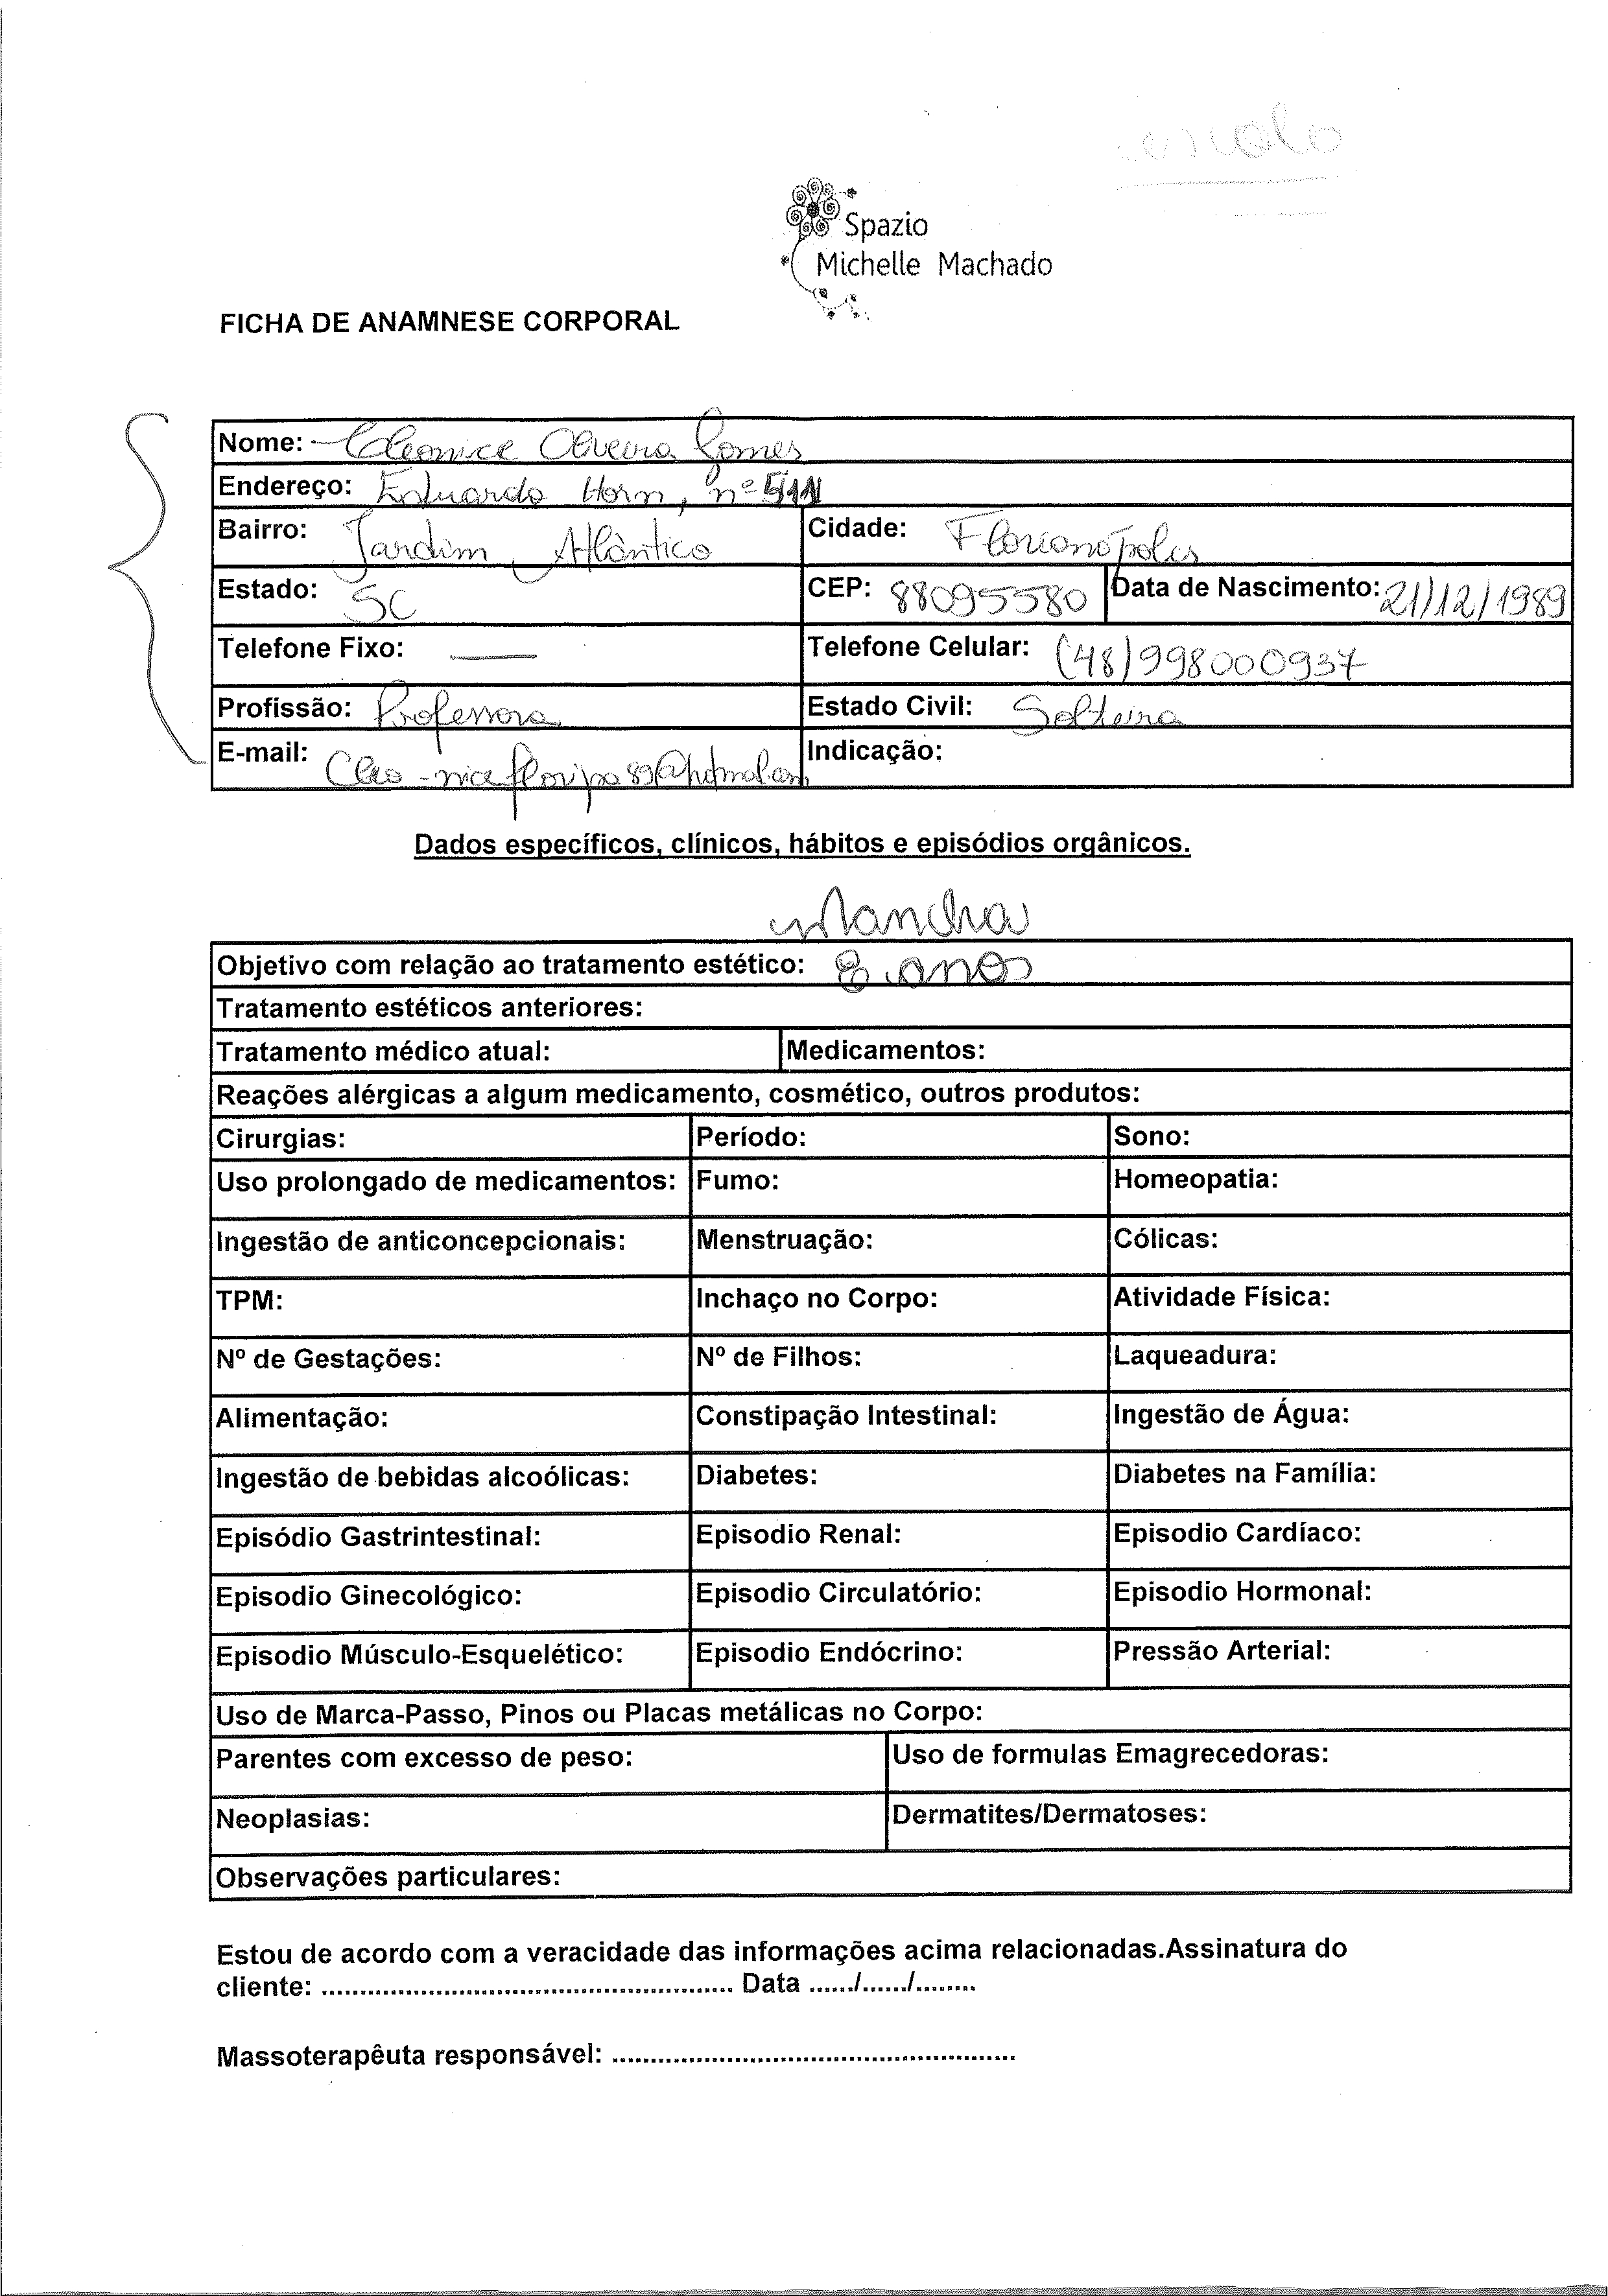 Spazio
Michelle Machado
FICHA DE ANAMNESE CORPORAL
Nome: Cleonice Oliveira Gomes
Endereço: Eduardo Horn, nº 511
Bairro: Jardim Atlântico Cidade: Florianópolis
Estado: SC CEP: 88095580 Data de Nascimento: 21/12/1989
Telefone Fixo: — Telefone Celular: (48) 998000937
Profissão: Professora Estado Civil: Solteira
E-mail: Cleo-nicefloripa89@hotmail.com Indicação:
Dados específicos, clínicos, hábitos e episódios orgânicos.
Mancha
Objetivo com relação ao tratamento estético: 8 anos
Tratamento estéticos anteriores:
Tratamento médico atual: Medicamentos:
Reações alérgicas a algum medicamento, cosmético, outros produtos:
Cirurgias: Período: Sono:
Uso prolongado de medicamentos: Fumo: Homeopatia:
Ingestão de anticoncepcionais: Menstruação: Cólicas:
TPM: Inchaço no Corpo: Atividade Física:
Nº de Gestações: Nº de Filhos: Laqueadura:
Alimentação: Constipação Intestinal: Ingestão de Água:
Ingestão de bebidas alcoólicas: Diabetes: Diabetes na Família:
Episódio Gastrintestinal: Episodio Renal: Episodio Cardíaco:
Episodio Ginecológico: Episodio Circulatório: Episodio Hormonal:
Episodio Músculo-Esquelético: Episodio Endócrino: Pressão Arterial:
Uso de Marca-Passo, Pinos ou Placas metálicas no Corpo:
Parentes com excesso de peso: Uso de formulas Emagrecedoras:
Neoplasias: Dermatites/Dermatoses:
Observações particulares:
Estou de acordo com a veracidade das informações acima relacionadas.Assinatura do
cliente: ..................................................... Data ....../....../........
Massoterapêuta responsável: ....................................................